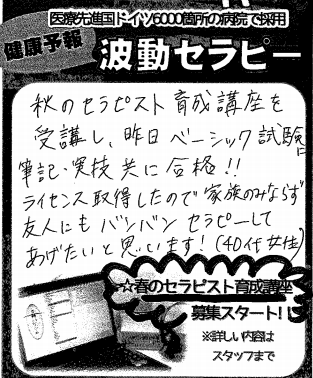 医療先進国ドイツ6000箇所の病院で採用
健康予報
波動セラピー
秋のセラピスト育成講座を
受講し、昨日ベーシック試験に
筆記・実技共に合格!!
ライセンス取得したので家族のみならず
友人にもバンバンセラピーして
あげたいと思います!(40代女性)
☆春のセラピスト育成講座
募集スタート!!
※詳しい内容は
スタッフまで